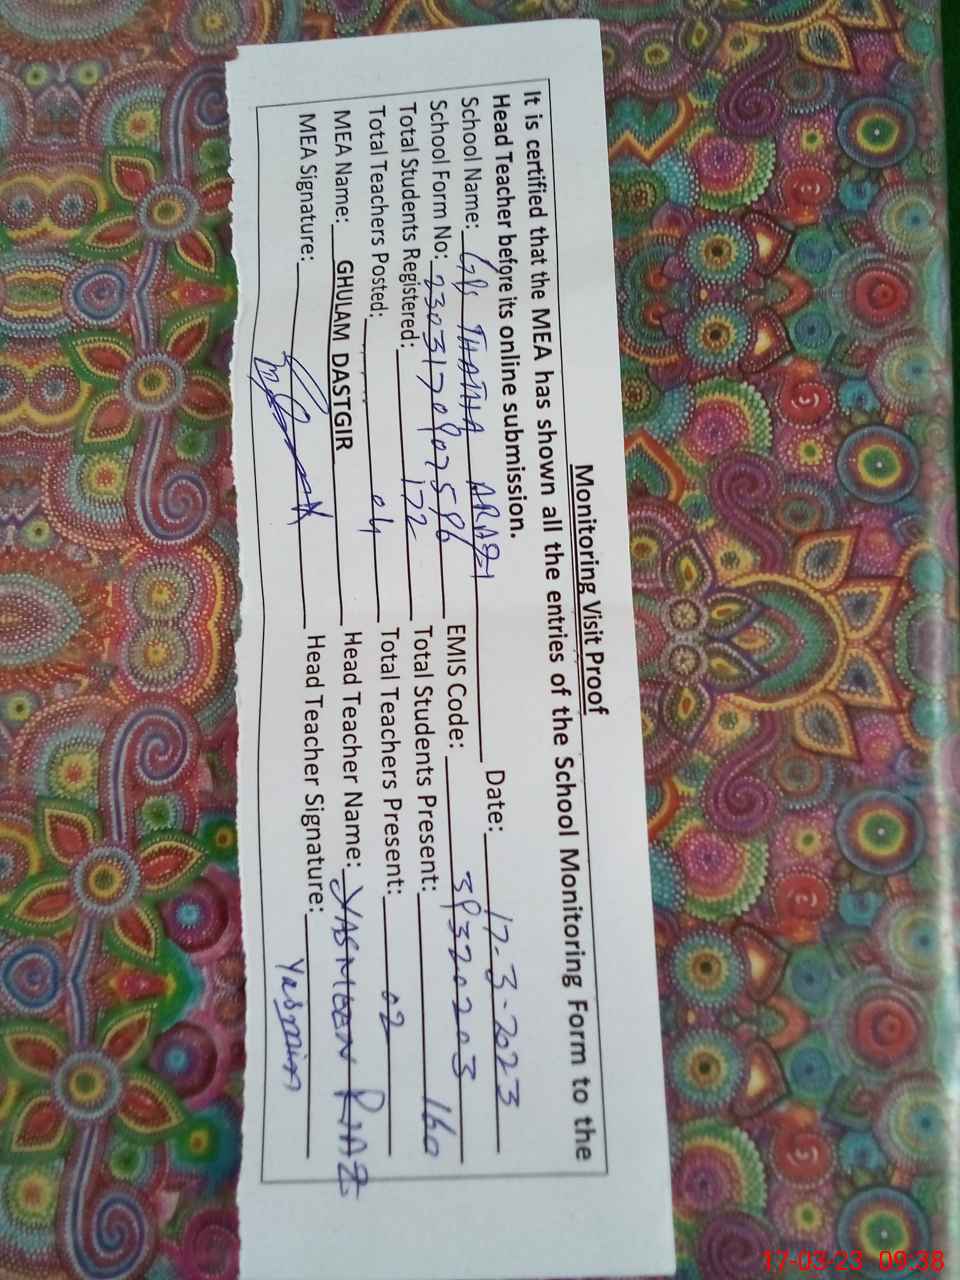 Monitoring Visit Proof
It is certified that the MEA has shown all the entries of the School Monitoring Form to the
Head Teacher before its online submission.
School Name: GPS THATHA ARAZI Date: 17-3-2023
School Form No: 230317907586 EMIS Code: 39320203
Total Students Registered: 172 Total Students Present: 160
Total Teachers Posted: 04 Total Teachers Present: 02
MEA Name: GHULAM DASTGIR Head Teacher Name: YASMEEN RIAZ
MEA Signature: Head Teacher Signature: Yasmin
17-03-23 09:38